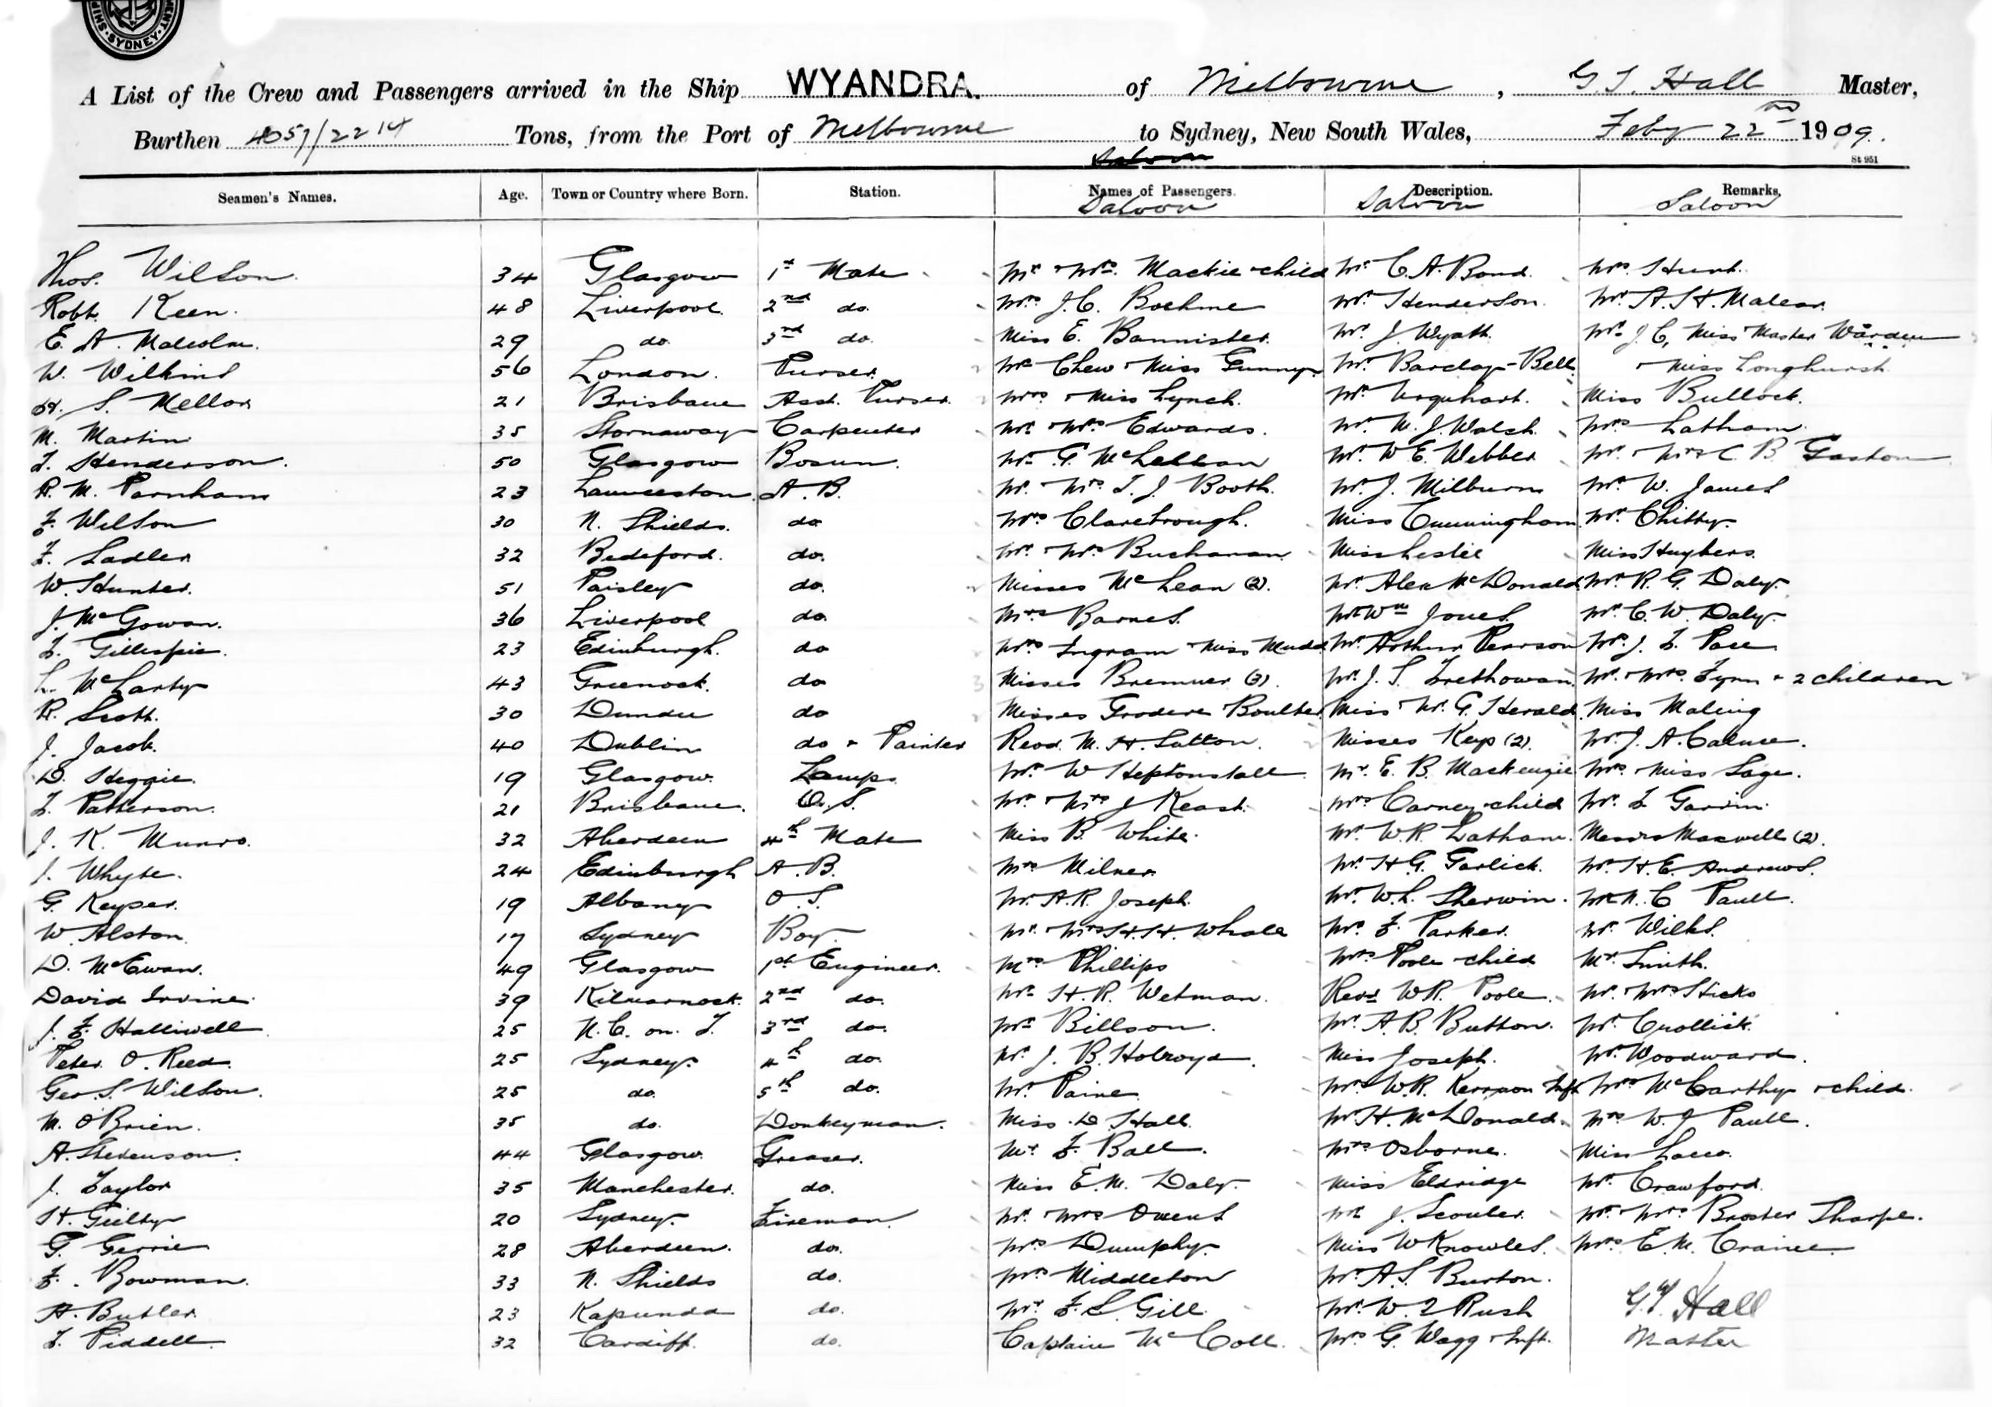 SYDNEY
A List of the Crew and Passengers arrived in the Ship WYANDRA. of Melbourne, G T Hall Master,
Burthen 4051/2214 Tons, from the Port of Melbourne to Sydney, New South Wales, Feby 22nd 1909.
St 951
Saloon
Seamen's Names. Age. Town or Country where Born. Station. Names of Passengers. Description. Remarks.
Saloon Saloon Saloon
Thos. Wilson 34 Glasgow 1st Mate Mr & Mrs. Mackie & child Mr C. A. Bond. Mrs Hunt.
Robt. Keen. 48 Liverpool 2nd do. Mrs J. C. Boehme Mr Henderson. Mr A. H. Malear.
E. A. Malcolm. 29 do 3rd do. Miss E. Bannister. Mr J. Wyath. Mr J. C, Miss & Master Warden
W. Wilkins 56 London. Purser. Mr Chew & Miss Gunny Mr Barclay-Bell & Miss Longhurst.
H. S. Mellor 21 Brisbane Asst. Purser. Mrs & Miss Lynch. Mr Urquhart. Miss Bullock.
M. Martin 35 Stornaway Carpenter Mr & Mrs Edwards. Mr M. J. Walsh. Mrs Latham.
T. Henderson. 50 Glasgow Bosun. Mr G. McLellan Mr W E. Webber Mr & Mrs C. B. Gaston
R. M. Parnham 23 Launceston. A. B. Mr & Mrs T. J. Booth. Mr J. Milburn Mr W. James
F. Wilson 30 N. Shields. do Mrs Clarebrough. Miss Cunningham Mr Chitty.
F. Sadler 32 Bedeford. do. Mr & Mrs Buchanan Miss Leslie Miss Huybers.
W. Hunter. 51 Paisley do. Misses McLean (2). Mr Alex McDonald Mr R. G. Daly.
J. McGowan. 36 Liverpool do. Mrs Barnes. Mr Wm Jones. Mr C. W. Daly.
T. Gillespie. 23 Edinburgh. do Mrs Ingram & Miss Mudd Mr Arthur Pearson Mr J. F. Pace
L. McLarty 43 Greenock. do Misses Bremner (3). Mr J. S. Trethowan. Mr & Mrs. Fynn & 2 children
R. Scott. 30 Dundee do Misses Boulter Miss & Mr G. Herald. Miss Maling
J. Jacob. 40 Dublin do & Painter Revd. M. H. Sutton. Misses Keys (2). Mr J. A. Calnce.
D. Heggie. 19 Glasgow. Lamps Mr W Heptonstall Mr E. B. Mackenzie Mrs & Miss Sage.
T. Patterson. 21 Brisbane. O. S. Mr & Mrs J Keast. Mrs Carney & child Mr T Garvin.
J. K. Munro. 32 Aberdeen 4th Mate Miss B. White. Mr W. R. Latham. Messrs Maxwell (2).
J. Whyte. 24 Edinburgh A. B. Mrs Milner Mr H. G. Garlick. Mr H. E. Andrews.
G. Keyser. 19 Albany O S. Mr A. R. Joseph. Mr W. L. Sherwin. Mr N. C Paull.
W. Alston. 17 Sydney Boy. Mr & Mrs H. H. Whall Mr F. Parker. Mr Wilks.
D. McEwan. 49 Glasgow 1st Engineer. Mrs Phillips Mrs Poole & child Mr Smith.
David Irvine. 39 Kilmarnock. 2nd do. Mr H. R. Wetman. Revd W. R. Poole. Mr & Mrs Hicks
J. F. Halliwell 25 N. C. on. T. 3rd do. Mr Billson. Mr A. B. Button. Mr Crollick.
Peter O. Reed. 25 Sydney. 4th do. Mr J. B. Holroyd. Miss Joseph. Mr Woodward.
Geo. S. Wilson. 25 do. 5th do. Mr Paine. Mrs W. R. Kerrison & Inft Mrs McCarthy & child.
M. O'Brien. 35 do. Donkeyman. Miss D Hall. Mr H. McDonald. Mrs W. J Paull.
A. Stevenson. 44 Glasgow. Greaser. Mr F. Ball. Mrs Osborne. Miss Lacco.
J. Taylor 35 Manchester. do. Miss E. M. Daly. Miss Eldridge Mr Crawford.
H. Guilty 20 Sydney. Fireman. Mr & Mrs Owens Mr J. Scouler. Mr & Mrs Broster Tharpe.
G. Gerrie 28 Aberdeen. do. Mrs Dumphy. Miss W Knowles. Mrs E. M. Craine
F. Bowman. 33 N. Shields do. Mrs Middleton Mr A. S. Burton.
A. Butler 23 Kapunda do. Mr F. S. Gill. Mr W. J Rush G. T Hall
T. Piddell. 32 Cardiff. do. Captain McColl. Mrs G. Wagg & Inft. Master